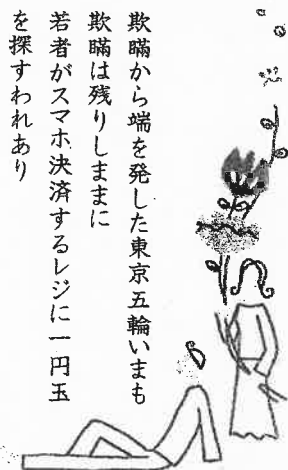 欺瞞から端を発した東京五輪いまも
欺瞞は残りしままに
若者がスマホ決済するレジに一円玉
を探すわれあり